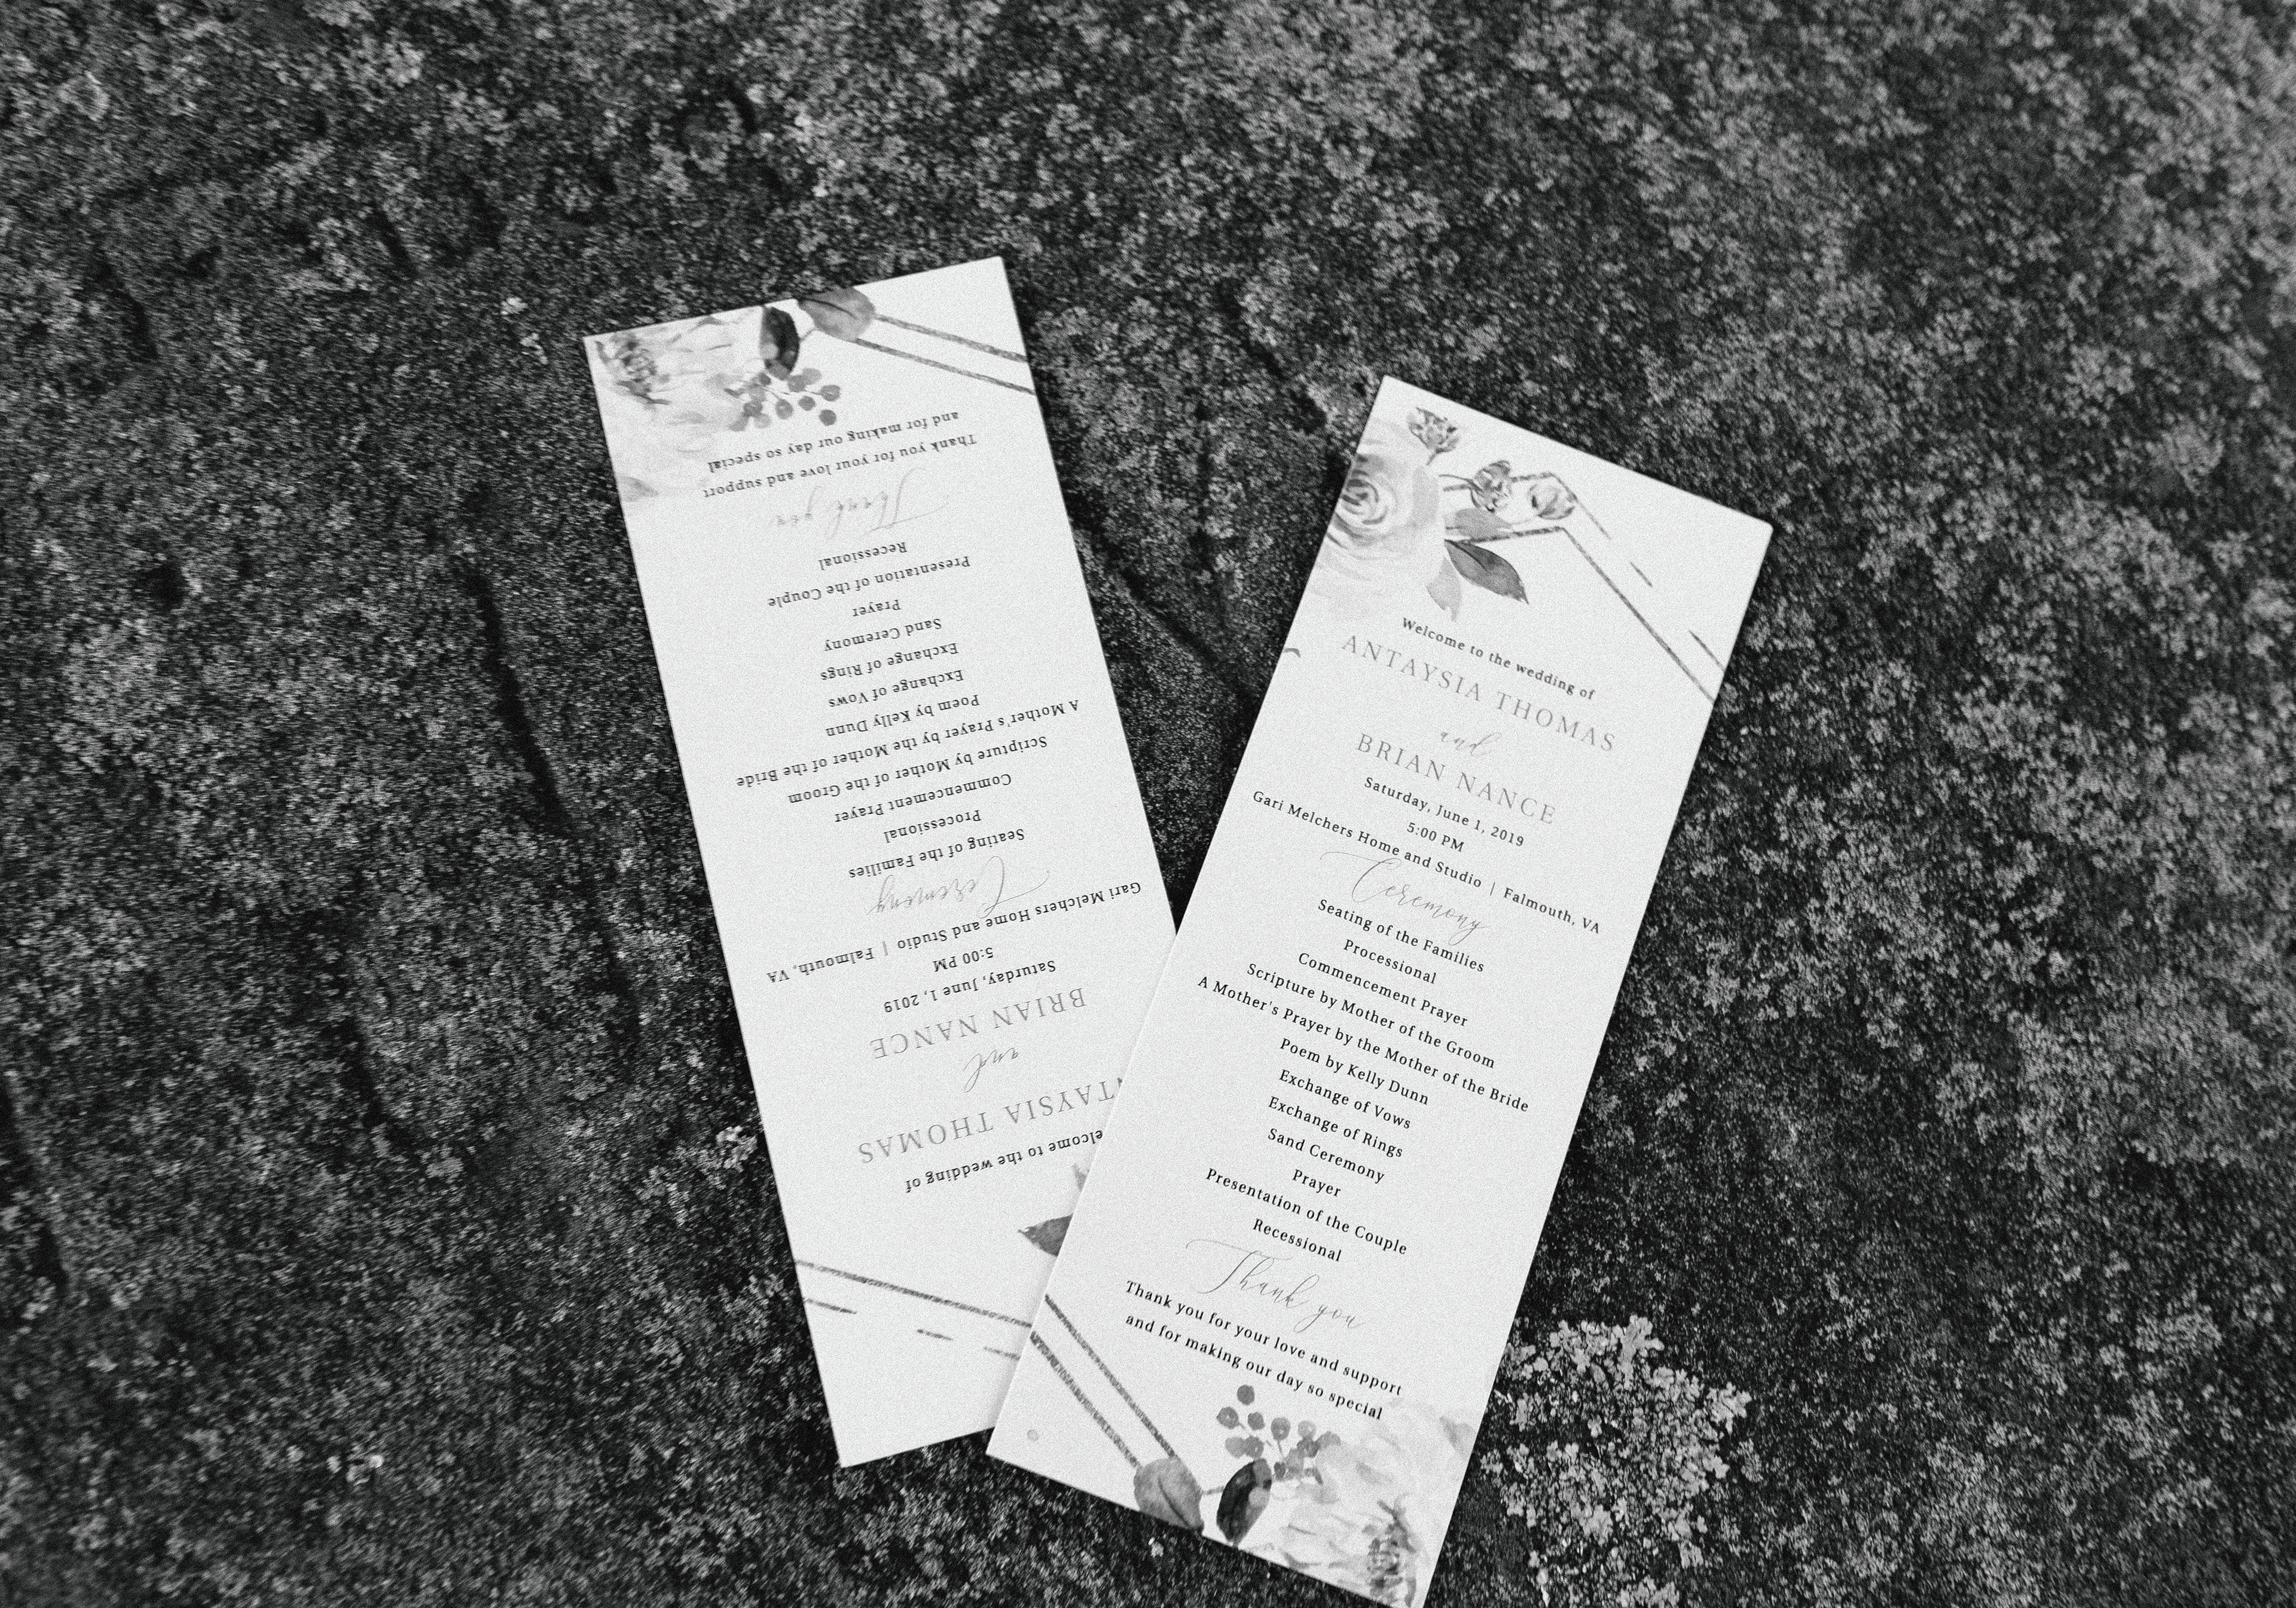 and for making our day so special
Thank you for your love and support
Thank you
Recessional
Presentation of the Couple
Prayer
Sand Ceremony
Exchange of Rings
Exchange of Vows
Poem by Kelly Dunn
A Mother's Prayer by the Mother of the Bride
Scripture by Mother of the Groom
Commencement Prayer
Processional
Seating of the Families
Ceremony
Gari Melchers Home and Studio | Falmouth, VA
5:00 PM
Saturday, June 1, 2019
BRIAN NANCE
and
TAYSIA THOMAS
elcome to the wedding of
Welcome to the wedding of
ANTAYSIA THOMAS
and
BRIAN NANCE
Saturday, June 1, 2019
5:00 PM
Gari Melchers Home and Studio | Falmouth, VA
Ceremony
Seating of the Families
Processional
Commencement Prayer
Scripture by Mother of the Groom
A Mother's Prayer by the Mother of the Bride
Poem by Kelly Dunn
Exchange of Vows
Exchange of Rings
Sand Ceremony
Prayer
Presentation of the Couple
Recessional
Thank you
Thank you for your love and support
and for making our day so special